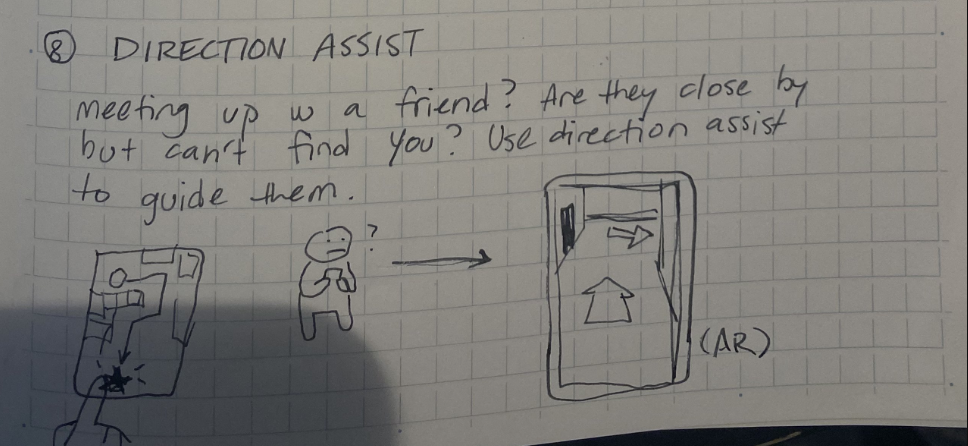 ⑧ DIRECTION ASSIST
Meeting up w a friend? Are they close by
but can't find you? Use direction assist
to guide them.
?
(AR)